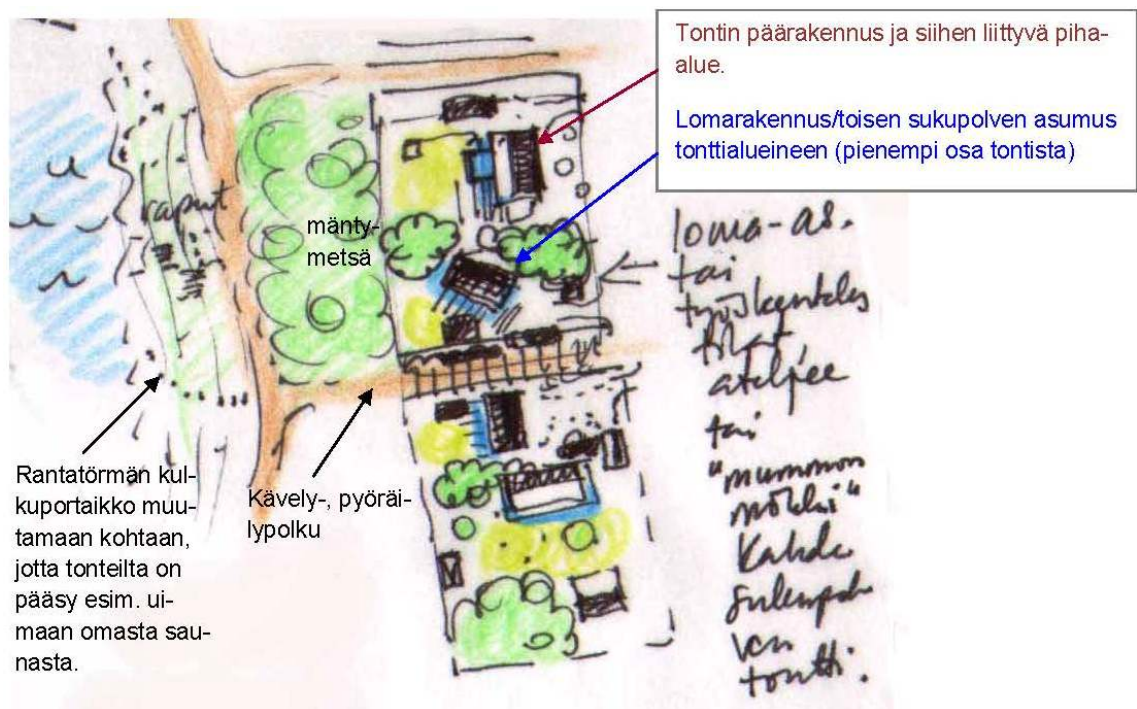 Tontin päärakennus ja siihen liittyvä piha-
alue.
Lomarakennus/toisen sukupolven asumus
tonttialueineen (pienempi osa tontista)
raput
mänty-
metsä
loma-as.
tai
työskentely
tilat
ateljee
tai
"mummon
mökki"
Kahde
sukupol
ven
tontti.
Rantatörmän kul-
kuportaikko muu-
tamaan kohtaan,
jotta tonteilta on
pääsy esim. ui-
maan omasta sau-
nasta.
Kävely-, pyöräi-
lypolku